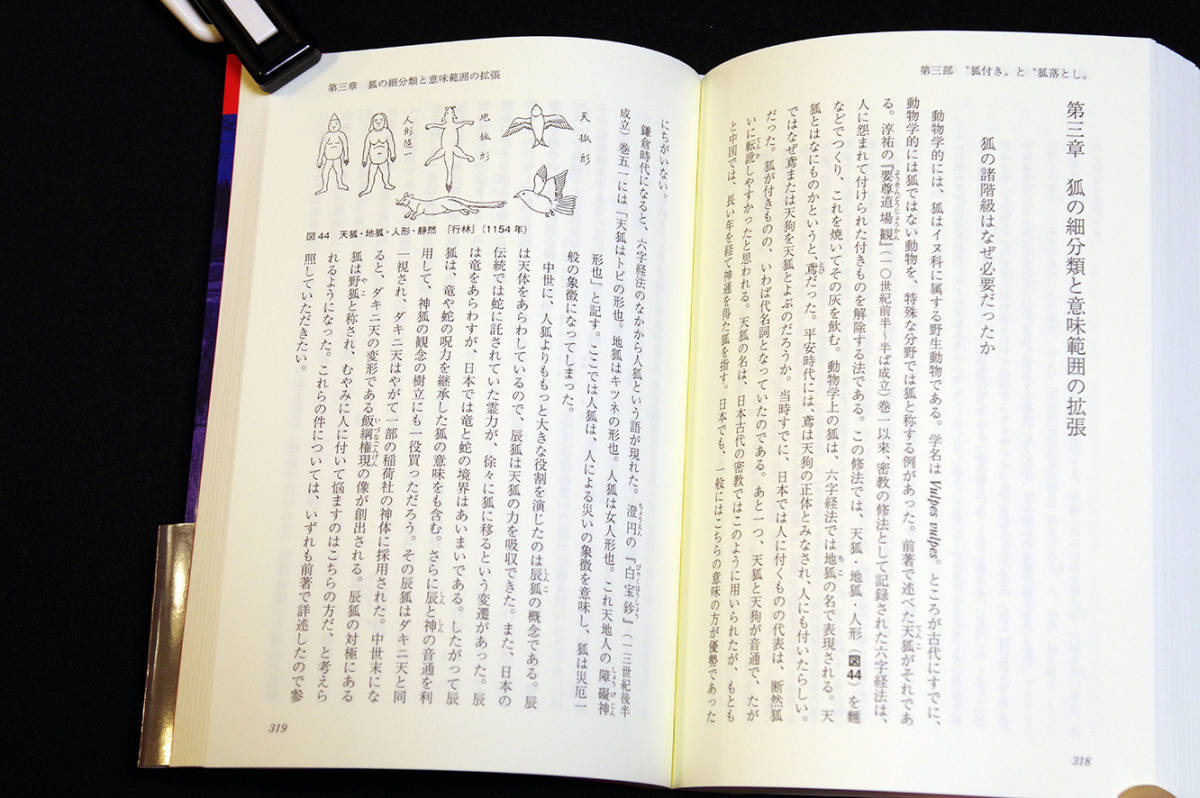 第三部 〝狐付き〟と〝狐落とし〟
第三章 狐の細分類と意味範囲の拡張
狐の諸階級はなぜ必要だったか
動物学的には、狐はイヌ科に属する野生動物である。学名はVulpes vulpes。ところが古代にすでに、
動物学的には狐ではない動物を、特殊な分野では狐と称する例があった。前著で述べた天狐がそれであ
る。淳祐の『要尊道場観』(一〇世紀前半~半ば成立)巻一以来、密教の修法として記録された六字経法は、
人に怨まれて付けられた付きものを解除する法である。この修法では、天狐・地狐・人形(図44)を麵
などでつくり、これを焼いてその灰を飲む。動物学上の狐は、六字経法では地狐の名で表現される。天
狐とはなにものかというと、鳶だった。平安時代には、鳶は天狗の正体とみなされ、人にも付いたらしい。
ではなぜ鳶または天狗を天狐とよぶのだろうか。当時すでに、日本では人に付くものの代表は、断然狐
だった。狐が付きものの、いわば代名詞となっていたのである。あと一つ、天狐と天狗が音通で、たが
いに転訛しやすかったと思われる。天狐の名は、日本古代の密教ではこのように用いられたが、もとも
と中国では、長い年を経て神通を得た狐を指す。日本でも、一般にはこちらの意味の方が優勢であった
318
第三章 狐の細分類と意味範囲の拡張
天狐形
地狐形
図44 天狐・地狐・人形・靜然 『行林』(1154年)
にちがいない。
鎌倉時代になると、六字経法のなかから人狐という語が現れた。澄円の『白宝鈔』(一三世紀後半
成立)巻五一には「天狐はトビの形也。地狐はキツネの形也。人狐は女人形也。これ天地人の障礙神
形也」と記す。ここでは人狐は、人による災いの象徴を意味し、狐は災厄一
般の象徴になってしまった。
中世に、人狐よりももっと大きな役割を演じたのは辰狐の概念である。辰
は天体をあらわしているので、辰狐は天狐の力を吸収できた。また、日本の
伝統では蛇に託されていた霊力が、徐々に狐に移るという変遷があった。辰
は竜をあらわすが、日本では竜と蛇の境界はあいまいである。したがって辰
狐は、竜や蛇の呪力を継承した狐の意味をも含む。さらに辰と神の音通を利
用して、神狐の観念の樹立にも一役買っただろう。その辰狐はダキニ天と同
一視され、ダキニ天はやがて一部の稲荷社の神体に採用された。中世末にな
ると、ダキニ天の変形である飯綱権現の像が創出される。辰狐の対極にある
狐は野狐と称され、むやみに人に付いて悩ますのはこちらの方だ、と考えら
れるようになった。これらの件については、いずれも前著で詳述したので参
照していただきたい。
319